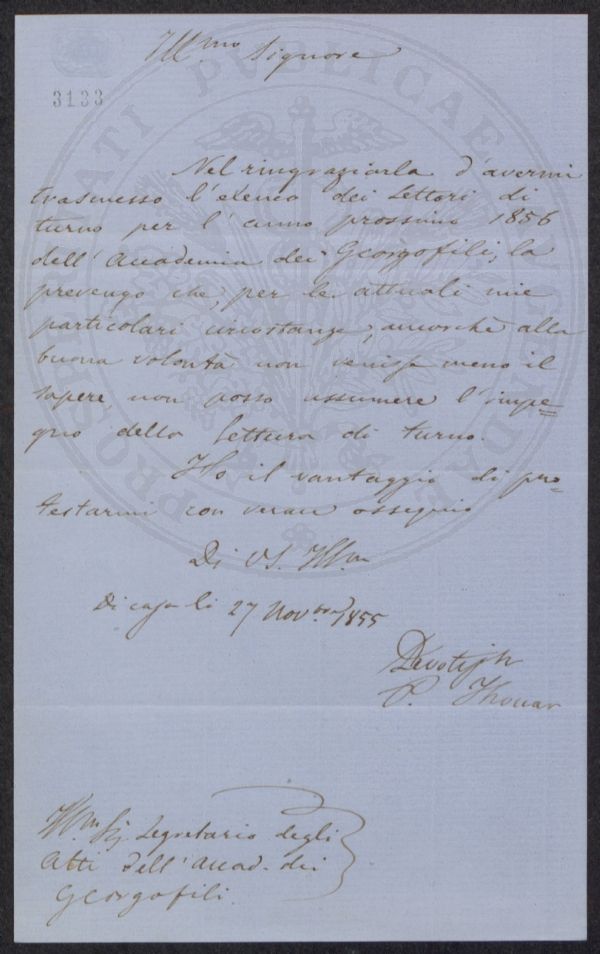 Ill.mo Signore
3133
PROSPERITATI PUBLICAE AUGENDAE
Nel ringraziarla d'avermi
trasmesso l'elenco dei Lettori di
turno per l'anno prossimo 1856
dell'Accademia dei Georgofili, la
prevengo che, per le attuali mie
particolari circostanze, ancorchè alla
buona volontà non venisse meno il
sapere non posso assumere l'impe=
gno della lettura di turno.
Ho il vantaggio di pro=
testarmi con verace ossequio
Di VS. Ill.ma
Di casa li 27 Nov.bre 1855
Devotiss.
P. Thouar
Ill.mo Sig. Segretario degli
Atti dell'Accad. dei
Georgofili.